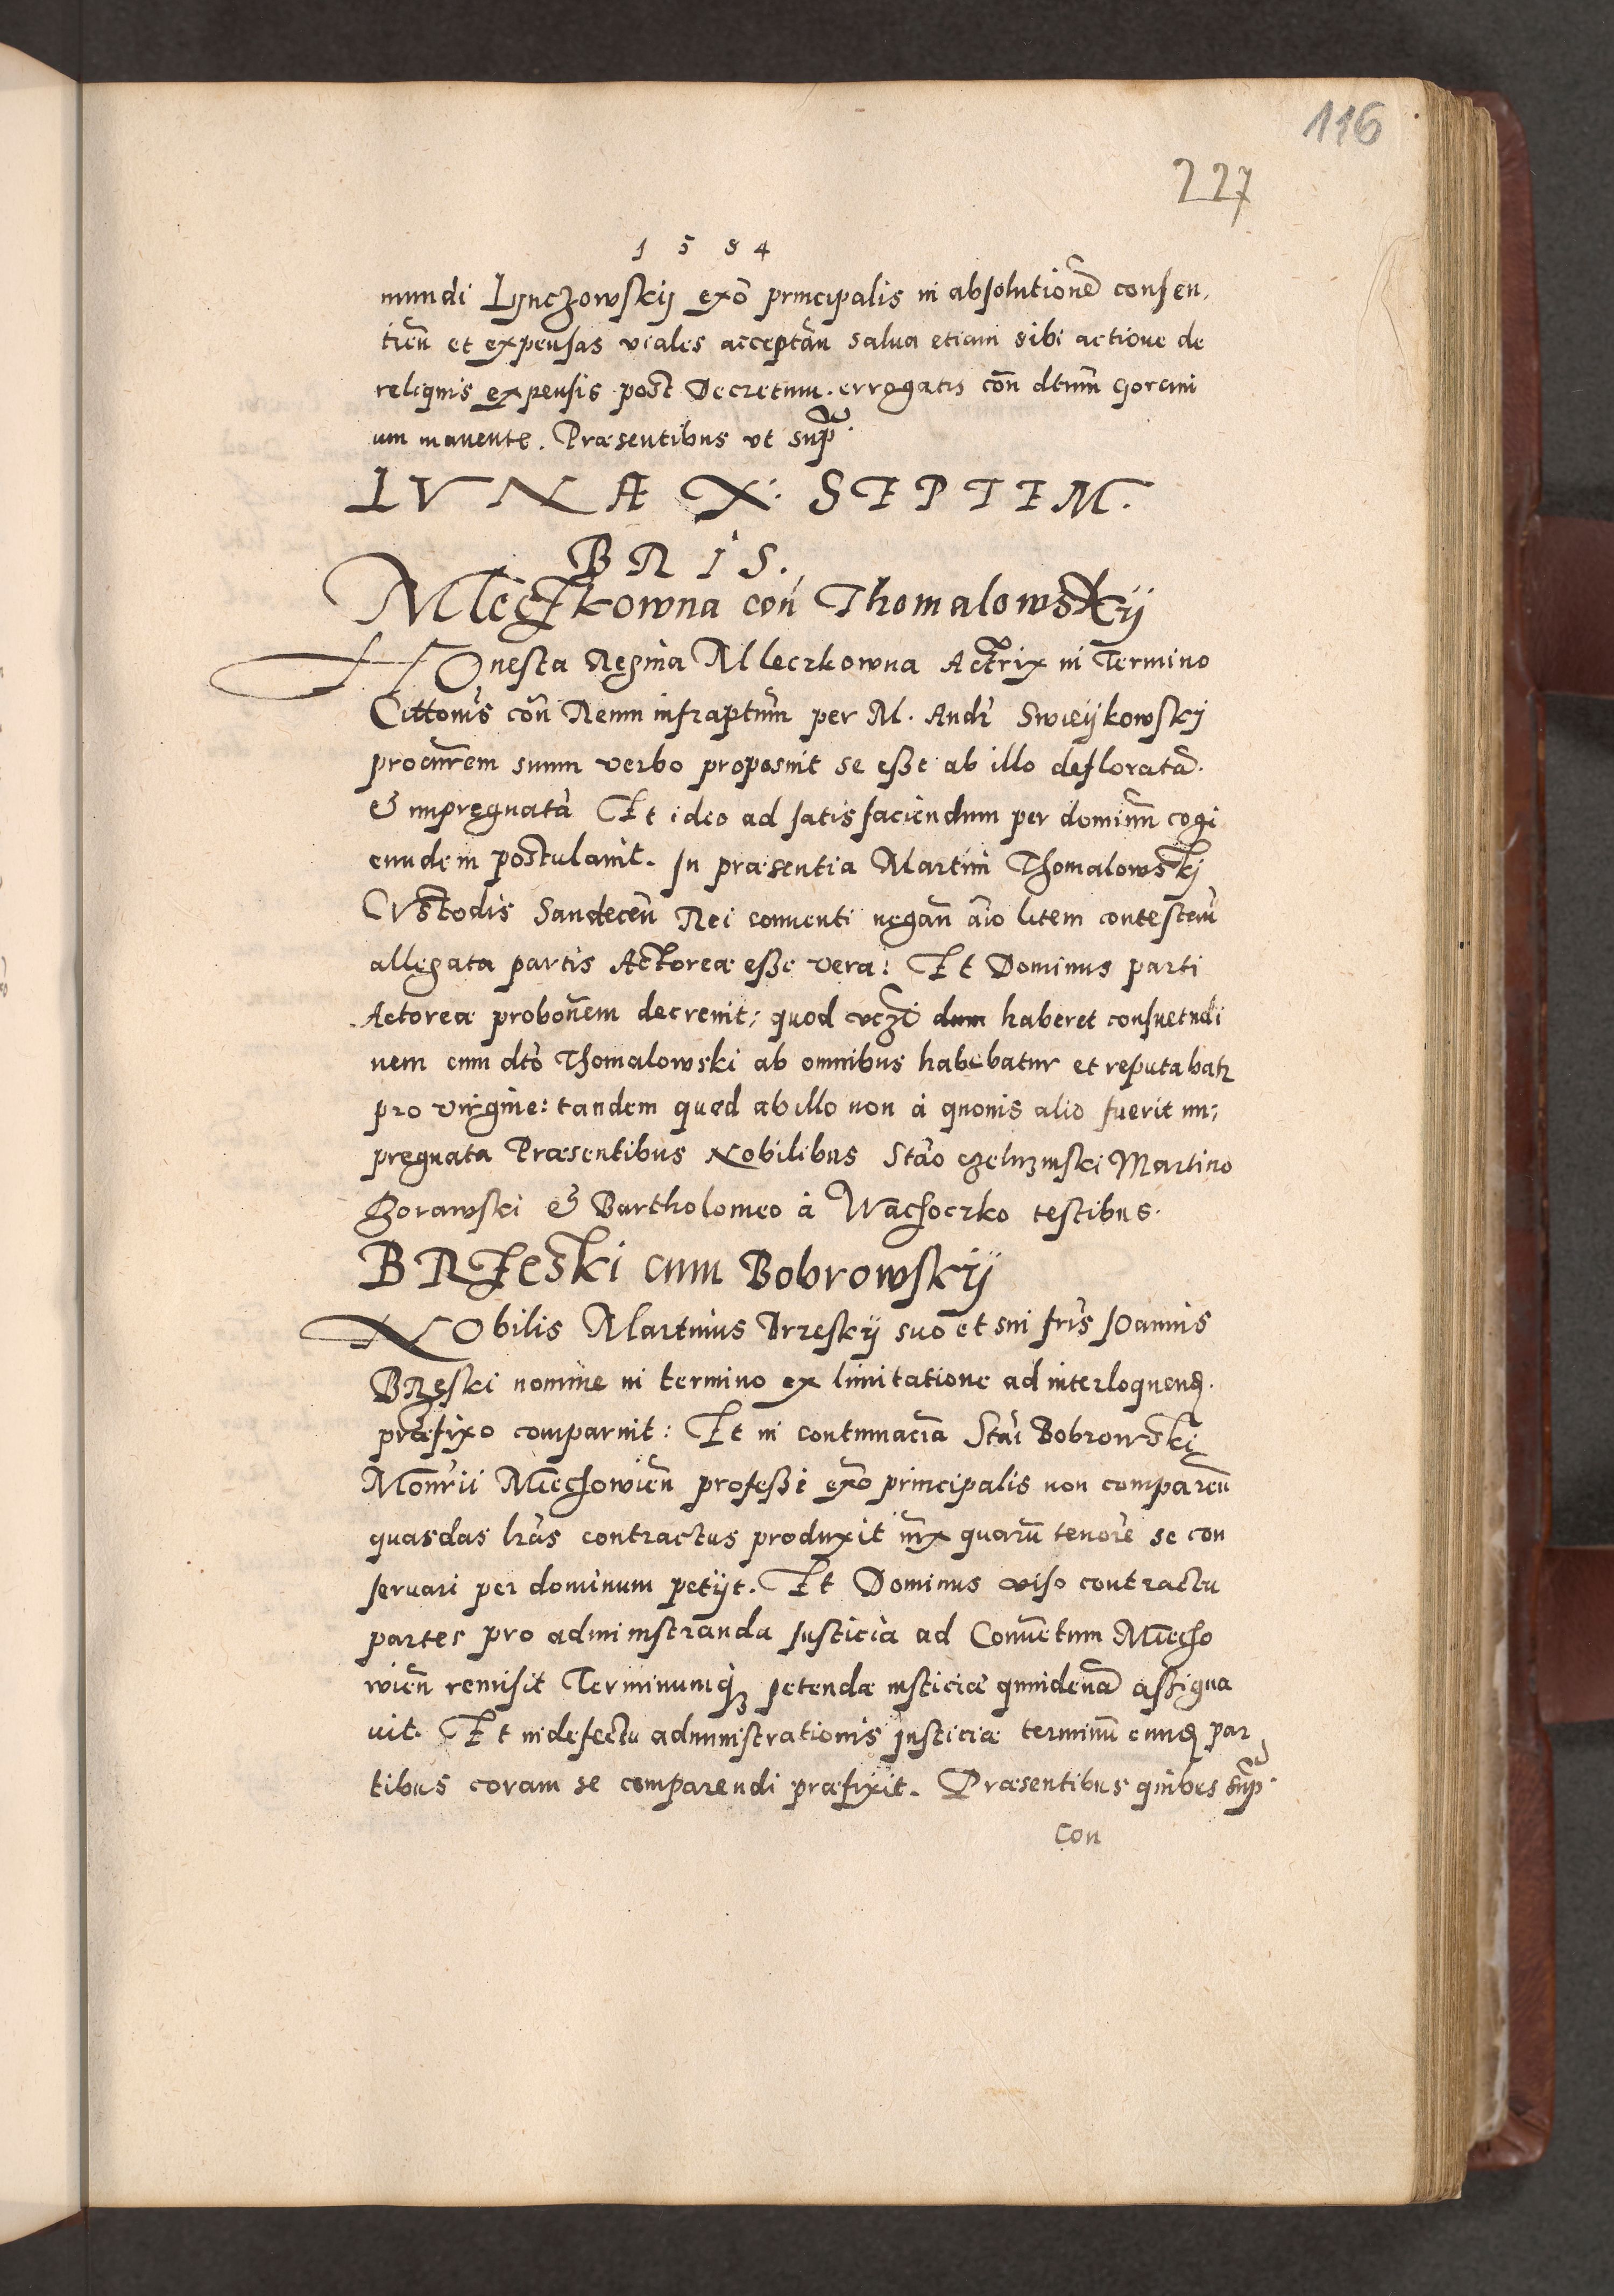 116
227
1584
mundi Lynczowskij exō principalis in absolutionē consen,
tień et expensas viales acceptań salua etiam sibi actione de
reliquis expensis post Decretum. errogatis coń dtum Gorcini
um manente. Præsentibus vt sup.
LVNÆ X. SEPTEM.
BRIS.
Mleczkowna coń Thomalowskij
HOnesta Regina Mleczkowna Actrix in Termino
Cittonis coń Reum infraptum per M. Andr Swieijkowskj
procurem suum verbo proposuit se esse ab illo deflorata.
& impregnatā Et ideo ad satisfaciendum per dominum cogi
eundem postulauit. In præsentia Martini Thomalowskj
CVstodis Sandeceń Rei conuenti negań aīo litem contesteń
allegata partis Actoreæ esse vera: Et Dominus parti
Actoreæ probonem decreuit; quod vczt dum haberet consuetudi
nem cum dto Thomalowski ab omnibus habebatur et reputabatr
pro virgine: tandem quod ab illo non à quouis alio fuerit im;
pregnata Præsentibus Nobilibus Stāo Martino
Gorawski & Bartholomeo à Wachoczko testibus.
BRZeski cum Bobrowskij
NObilis Martinus Brzeskij suō et sui fris Joannis
BRzeski nomine in termino ex limitatione ad interloquend.
præfixo comparuit: Et in contumaciā Stāi Bobrowskj
Monrii Miechowień professi exō principalis non compareń
quasdas lrās contractus produxit iux quarū tenorē se con
seruari per dominum petijt. Et Dominus viso contractu
partes pro administranda Justiciā ad Conuētum Miecho
wień remisit Terminumq petendæ iusticiæ quindenā assigna
uit. Et in defectu administrationis Justiciæ terminū eund par,
tibus coram se comparendi præfixit. Præsentibus quibus sup.
con